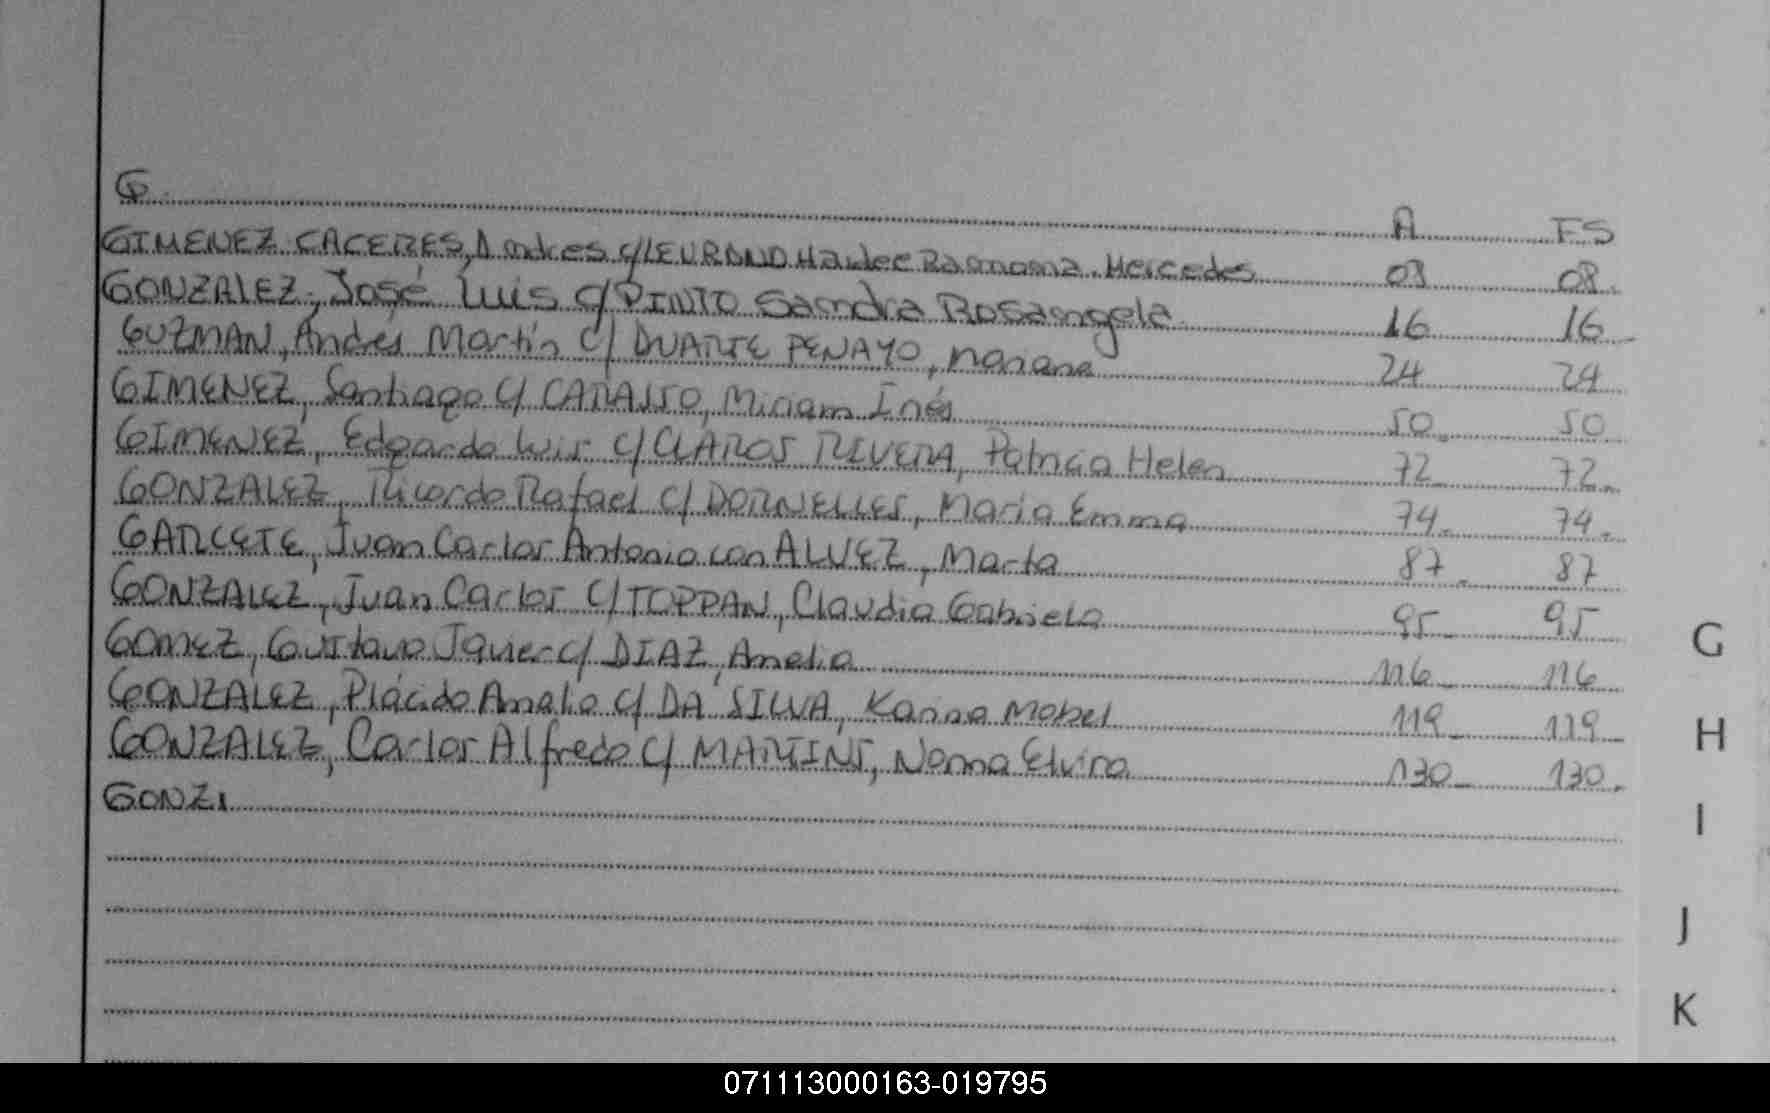 G. A FS
GIMENEZ CACERES, Andres c/ Haidee Ramona Mercedes 08
GONZALEZ, José Luis c/ PINTO Sandra Rosangela 16 16
GUZMAN, Andrés Martín c/ DUARTE PENAYO, Mariana 24 24
GIMENEZ, Santiago c/ Miriam Inés 50 50
GIMENEZ, Edgardo Luis c/ CLAROS RIVERA, Patricia Helen 72 72
GONZALEZ, Ricardo Rafael c/ DORNELLES, Maria Emma 74 74
GARCETE, Juan Carlos Antonio con ALVEZ, Marta 87 87
GONZALEZ, Juan Carlos c/ TOPPAN, Claudia Gabriela 95 95
GOMEZ, Gustavo Javier c/ DIAZ, Amelia 116 116
GONZALEZ, Plácido Amalio c/ DA SILVA, Karina Mabel 119 119
GONZALEZ, Carlos Alfredo c/ MARTINS, Norma Elvira 130 130
GONZ
G
H
I
J
K
071113000163-019795